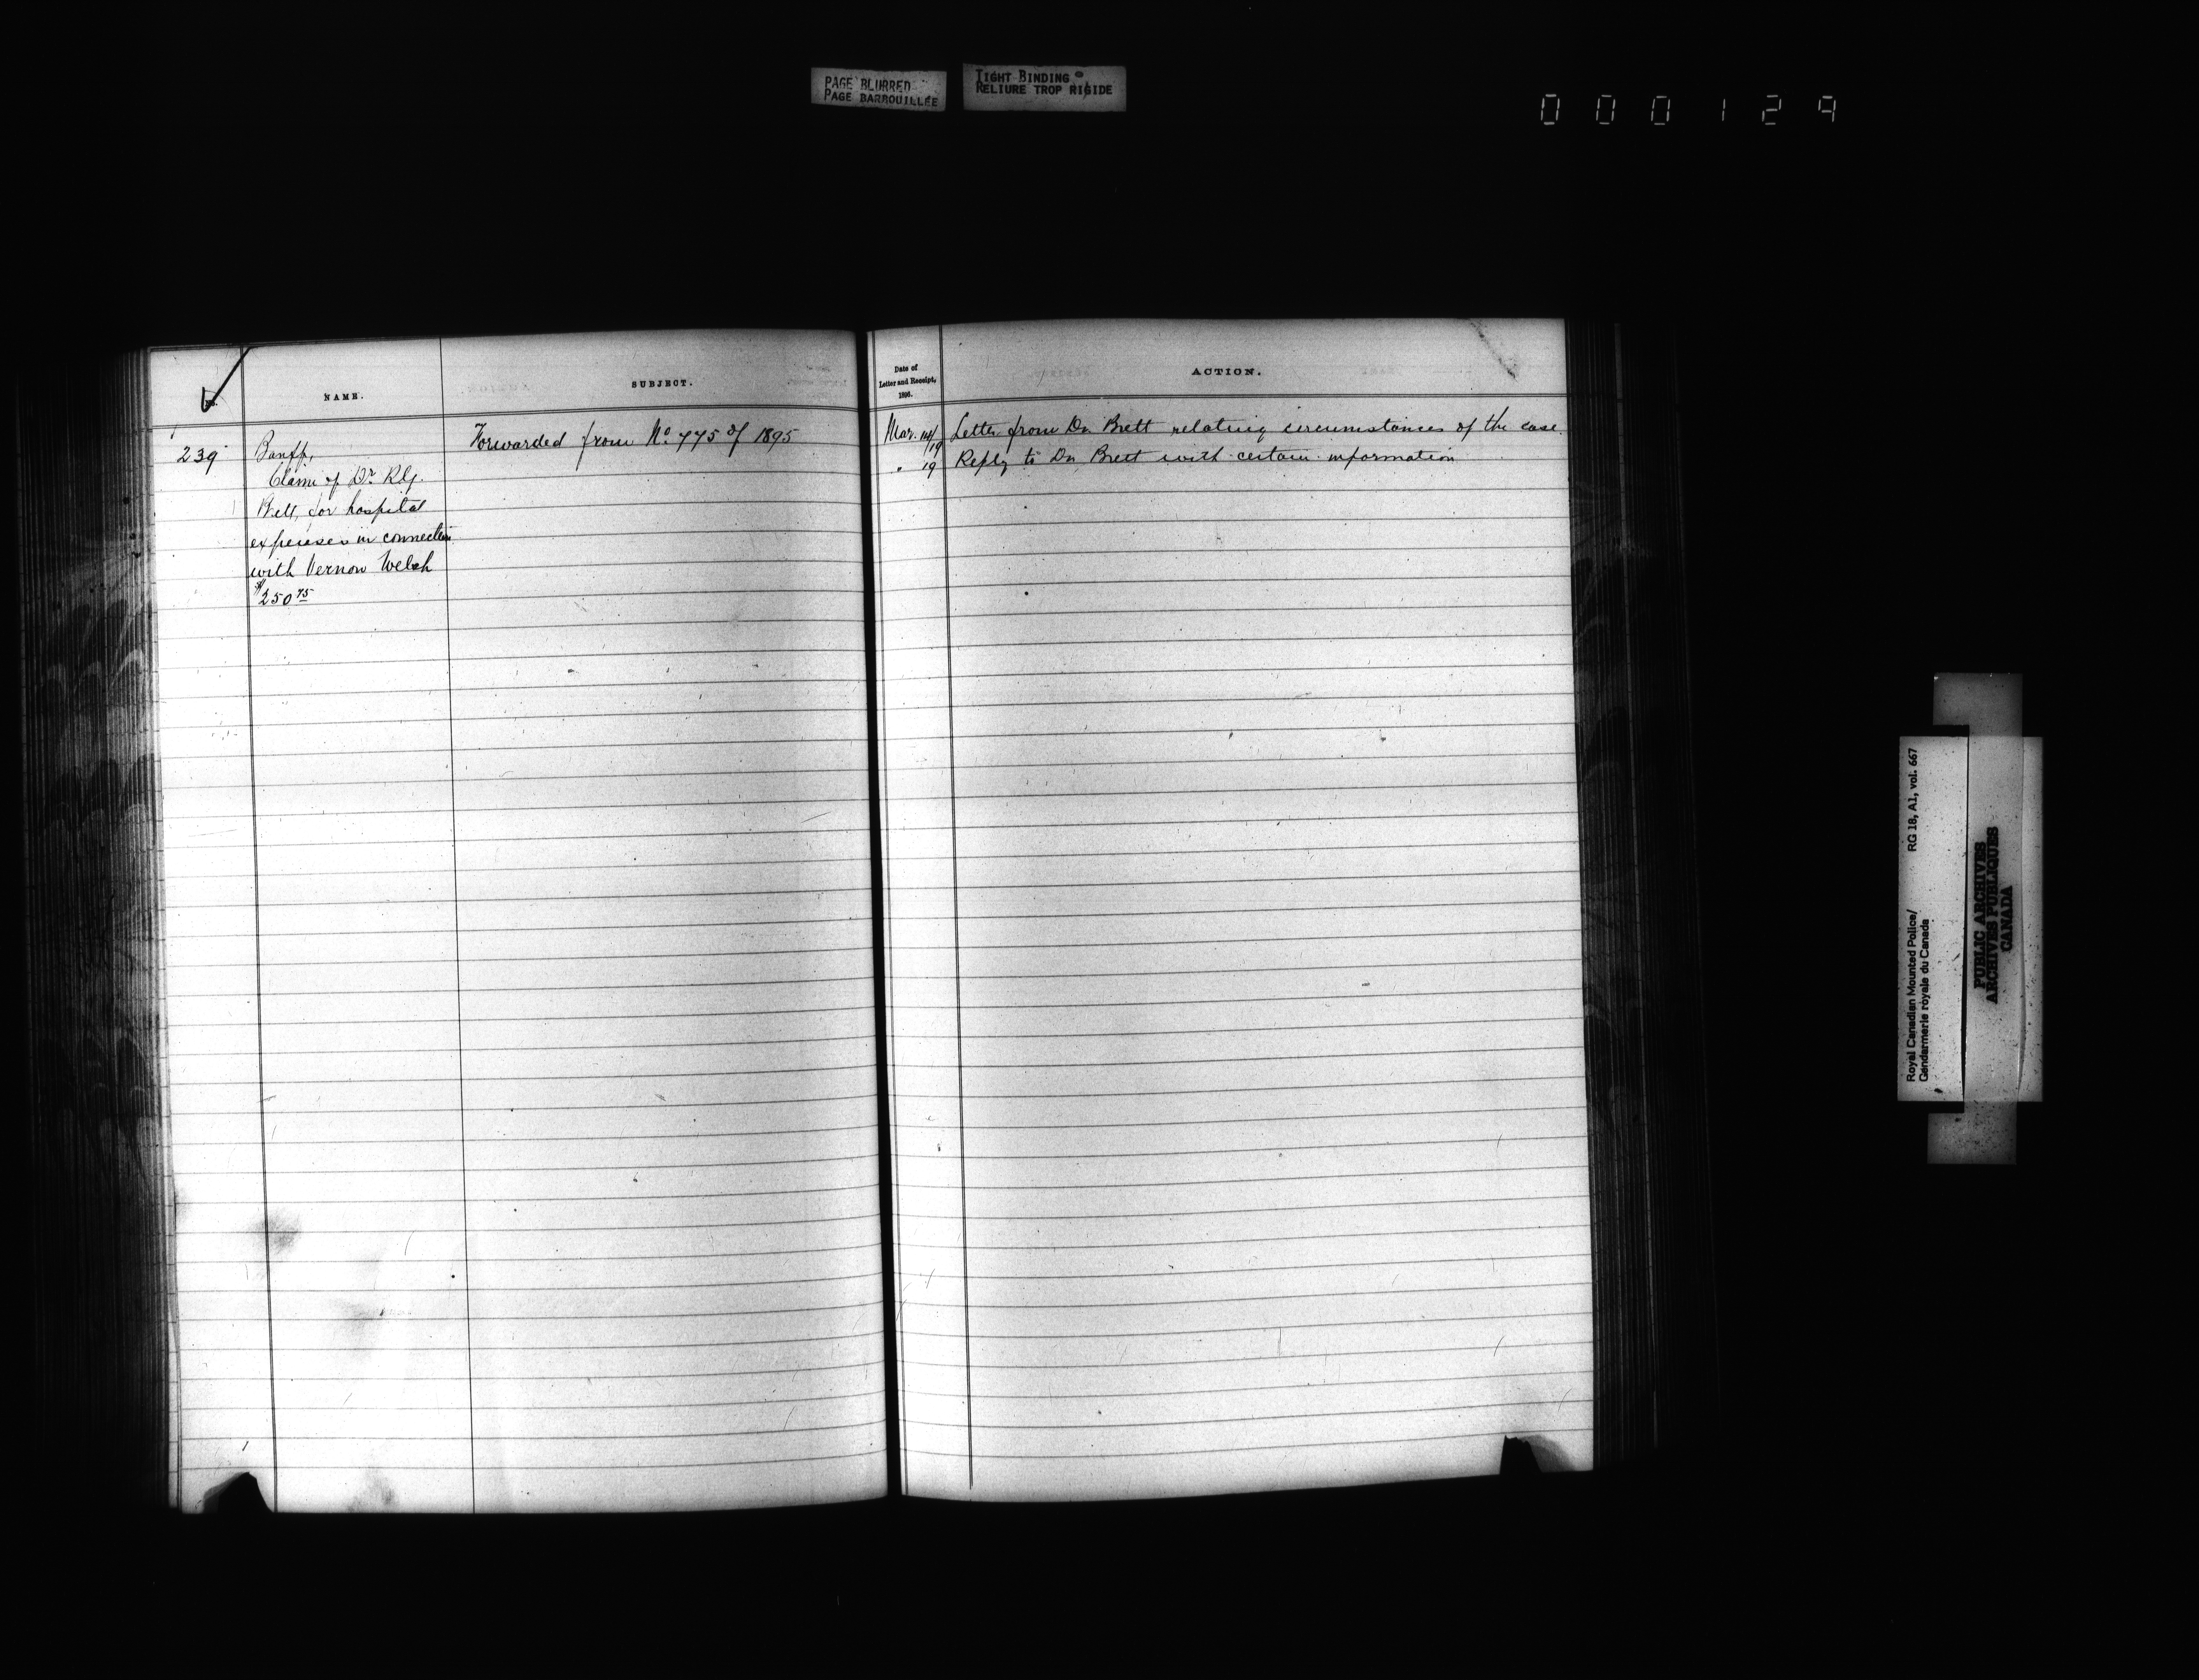 PAGE BLURRED
PAGE BARBOUILLÉE
TIGHT BINDING
RELIURE TROP RIGIDE
000129
No.
NAME.
SUBJECT.
Date of
Letter and Receipt,
1896.
ACTION.
239
Banff,
Claim of Dr. R.G.
Brett, for hospital
expenses in connection
with Vernon Welch
$250 75
Forwarded from No 775 of 1895
Mar. 14/19 Letter from Dr. Brett relating circumstances of the case.
" 19 Reply to Dr. Brett with certain information
Royal Canadian Mounted Police/
Gendarmerie royale du Canada
RG 18, A1, vol. 667
PUBLIC ARCHIVES
ARCHIVES PUBLIQUES
CANADA